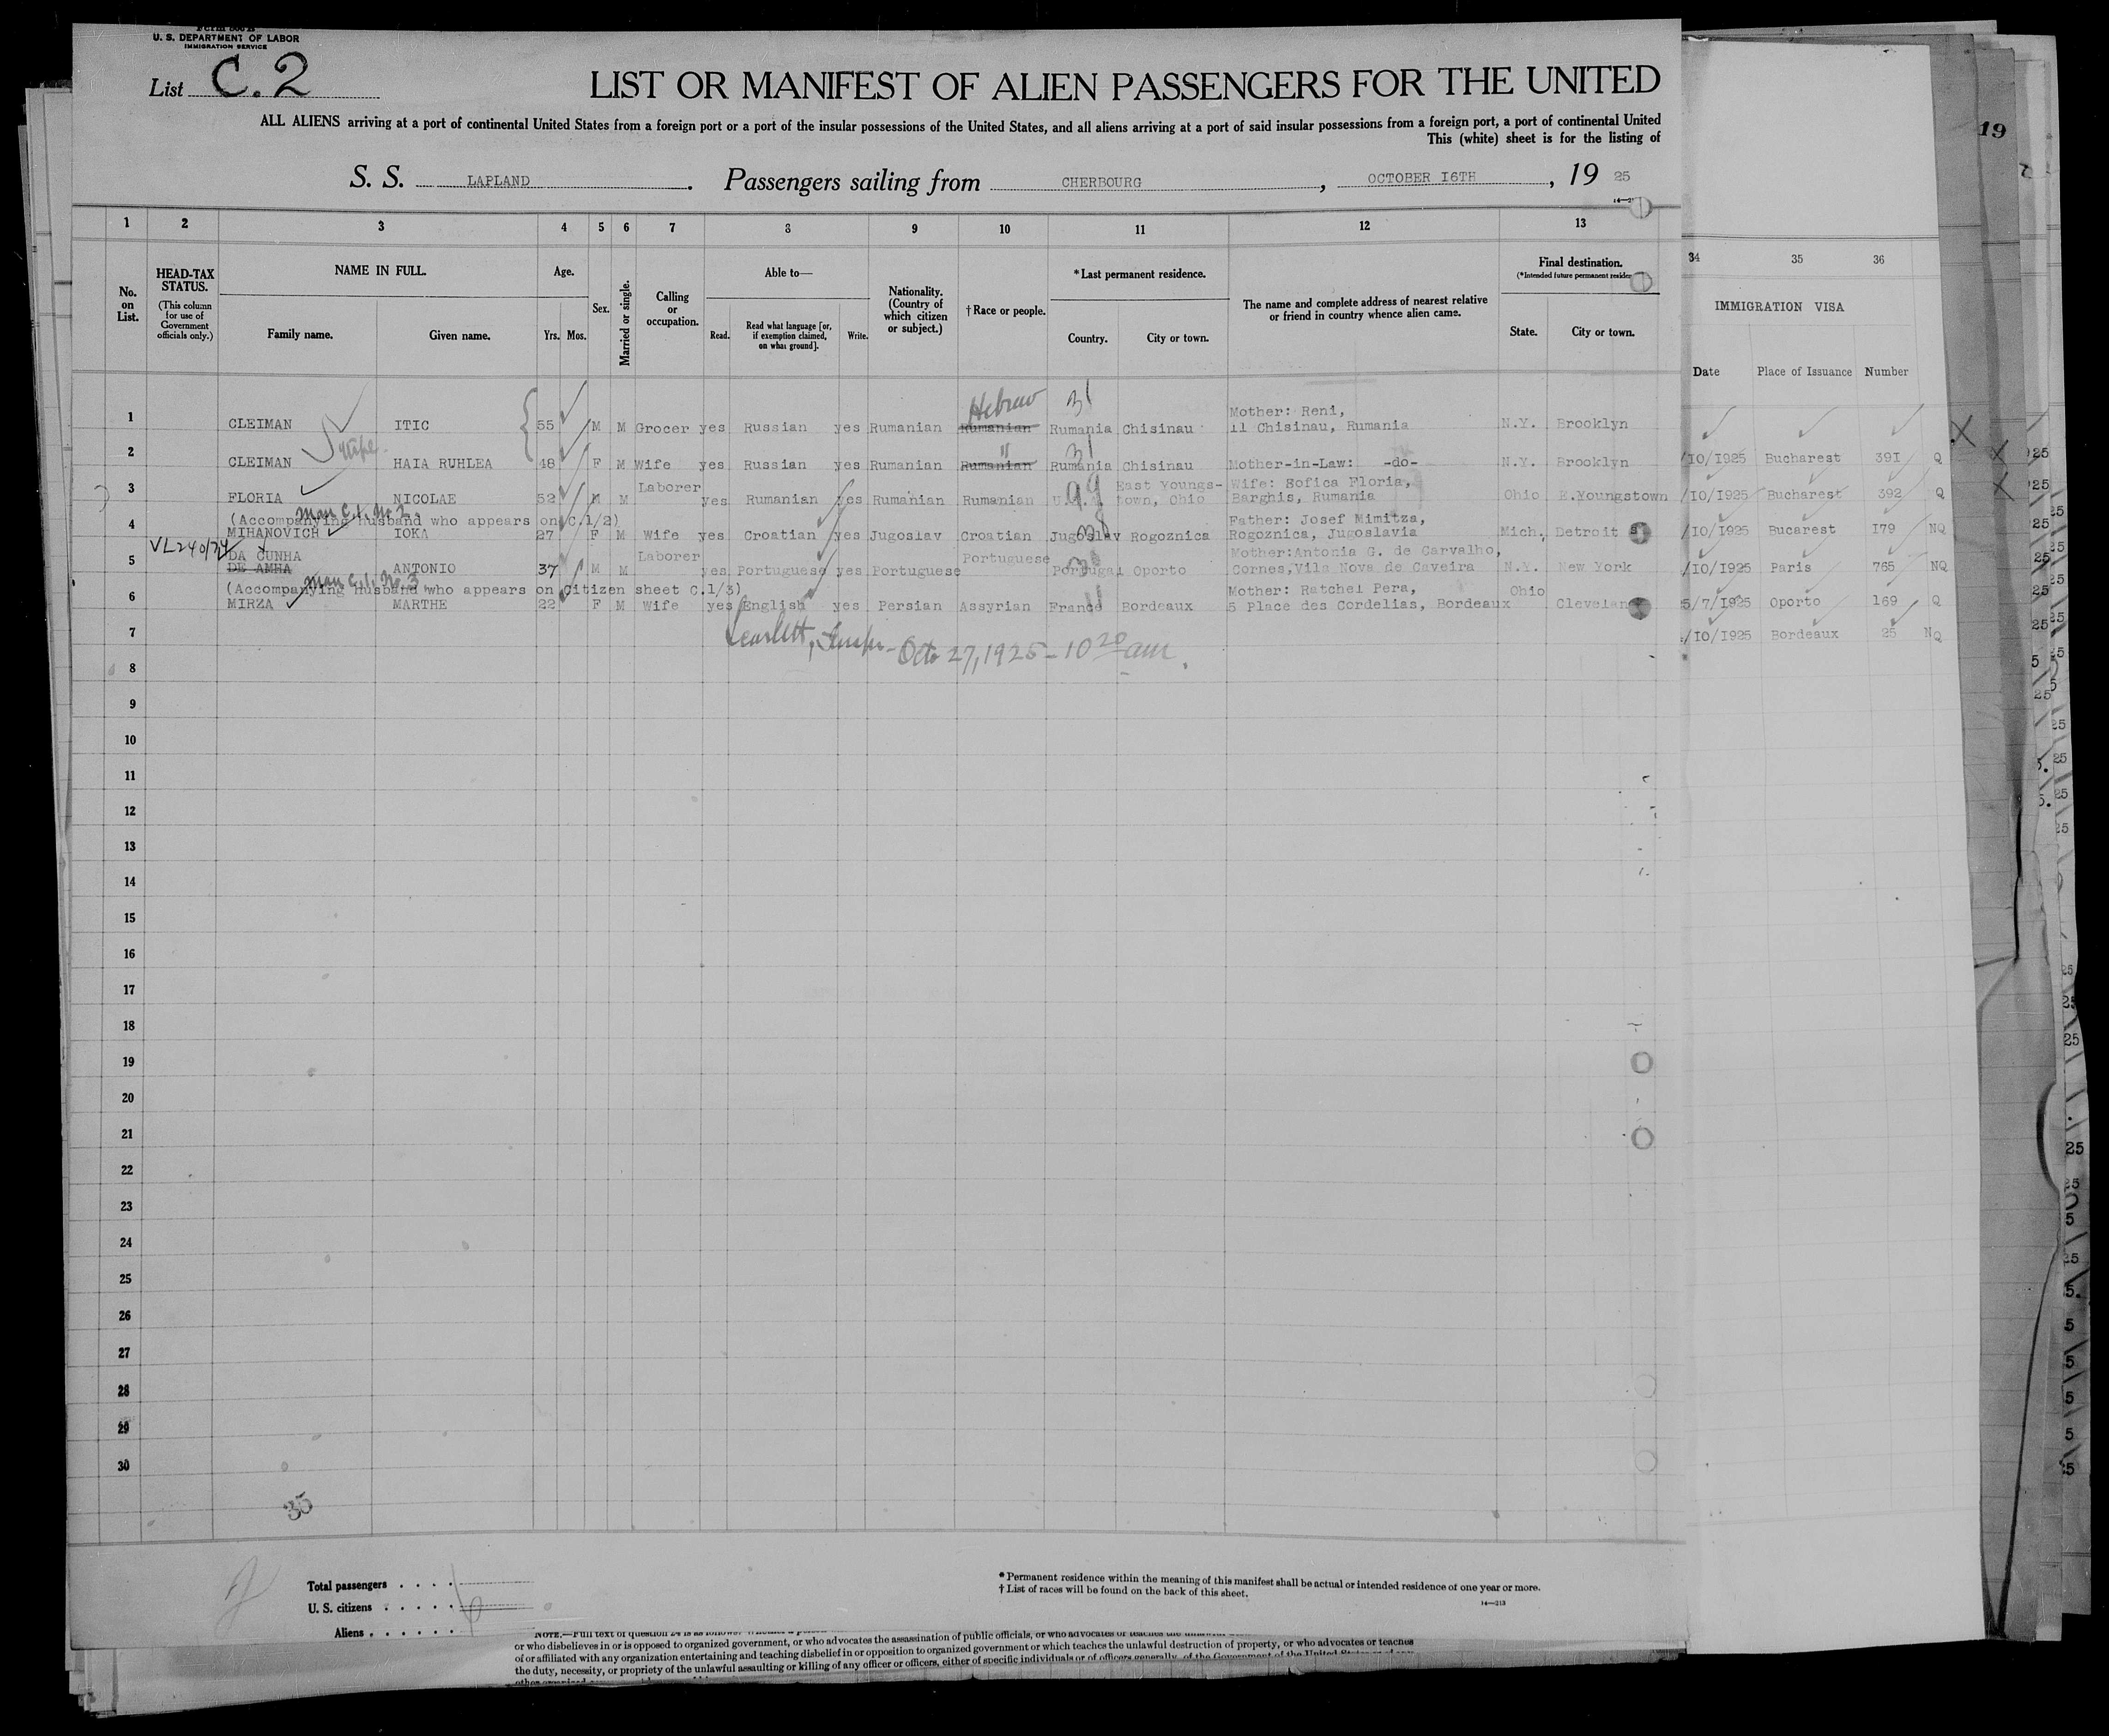 U. S. DEPARTMENT OF LABOR
IMMIGRATION SERVICE
List C. 2
LIST OR MANIFEST OF ALIEN PASSENGERS FOR THE UNITED
ALL ALIENS arriving at a port of continental United States from a foreign port or a port of the insular possessions of the United States, and all aliens arriving at a port of said insular possessions from a foreign port, a port of continental United
This (white) sheet is for the listing of
S. S. LAPLAND. Passengers sailing from CHERBOURG, OCTOBER I6TH, 19 25
19
1 2 3 4 5 6 7 8 9 10 11 12 13
34 35 36
No. on List.
HEAD-TAX STATUS.
(This column for use of Government officials only.)
NAME IN FULL.
Family name. Given name.
Age.
Yrs. Mos.
Sex.
Married or single.
Calling or occupation.
Able to—
Read. Read what language [or, if exemption claimed, on what ground]. Write.
Nationality. (Country of which citizen or subject.)
† Race or people.
* Last permanent residence.
Country. City or town.
The name and complete address of nearest relative or friend in country whence alien came.
Final destination.
State. City or town.
IMMIGRATION VISA
Date Place of Issuance Number
Hebrew 31
Mother: Reni,
1 CLEIMAN ITIC 55 M M Grocer yes Russian yes Rumanian Rumanian Rumania Chisinau 11 Chisinau, Rumania N.Y. Brooklyn
wife " 31
2 CLEIMAN HAIA RUHLEA 48 F M Wife yes Russian yes Rumanian Rumanian Rumania Chisinau Mother-in-Law: -do- N.Y. Brooklyn /10/1925 Bucharest 391 Q
Laborer East Youngs- Wife: Sofica Floria,
3 FLORIA NICOLAE 52 M M yes Rumanian yes Rumanian Rumanian 99 town, Ohio Barghis, Rumania Ohio E.Youngstown /10/1925 Bucharest 392 Q
(Accompanying husband who appears on C.1/2)
Father: Josef Mimitza,
4 MIHANOVICH IOKA 27 F M Wife yes Croatian yes Jugoslav Croatian Jugoslav Rogoznica Rogoznica, Jugoslavia Mich. Detroit /10/1925 Bucarest 179 NQ
VL240/24
DA CUNHA Laborer Portuguese Mother:Antonia G. de Carvalho,
5 DE AMHA ANTONIO 37 M M yes Portuguese yes Portuguese Portugal Oporto Cornes,Vila Nova de Caveira N.Y. New York /10/1925 Paris 765 NQ
(Accompanying husband who appears on Citizen sheet C.1/3)
Mother: Ratchel Pera, Ohio
6 MIRZA MARTHE 22 F M Wife yes English yes Persian Assyrian France Bordeaux 5 Place des Cordelias, Bordeaux Cleveland 5/7/1925 Oporto 169 Q
7 /10/1925 Bordeaux 25 NQ
Scarlett, Inspr- Oct 27, 1925 - 10 20 am.
8
9
10
11
12
13
14
15
16
17
18
19
20
21
22
23
24
25
26
27
28
29
30
35
Total passengers
U. S. citizens
Aliens
* Permanent residence within the meaning of this manifest shall be actual or intended residence of one year or more.
† List of races will be found on the back of this sheet.
14—213
or who disbelieves in or is opposed to organized government, or who advocates the assassination of public officials, or who advocates or teaches
of or affiliated with any organization entertaining and teaching disbelief in or opposition to organized government or which teaches the unlawful destruction of property, or who advocates or teaches
the duty, necessity, or propriety of the unlawful assaulting or killing of any officer or officers, either of specific individuals or of officers generally, of the Government of the United States